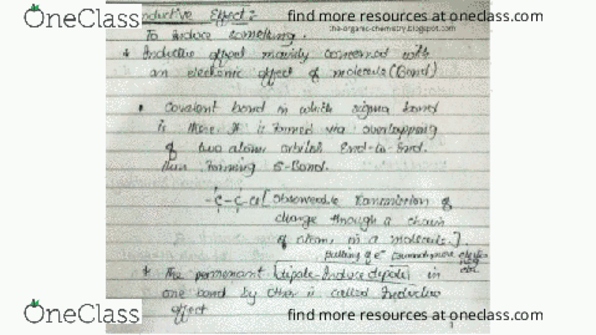 OneClass
find more resources at oneclass.com
Inductive Effect:-
the-organic-chemistry.blogspot.com
To induce something.
* Inductive effect mainly concerned with
an electronic effect of molecule (Bond)
• Covalent bond in which sigma bond
is there. It is formed via overlapping
of two atomic orbitals End-to-End.
thus forming σ-Bond.
-C-C-Cl [Observable transmission of
charge through a chain
of atoms in a molecule.]
pulling of e⁻ towards more
* The permanent [dipole-Induce dipole] in
one bond by other is called Inductive
effect
OneClass
find more resources at oneclass.com